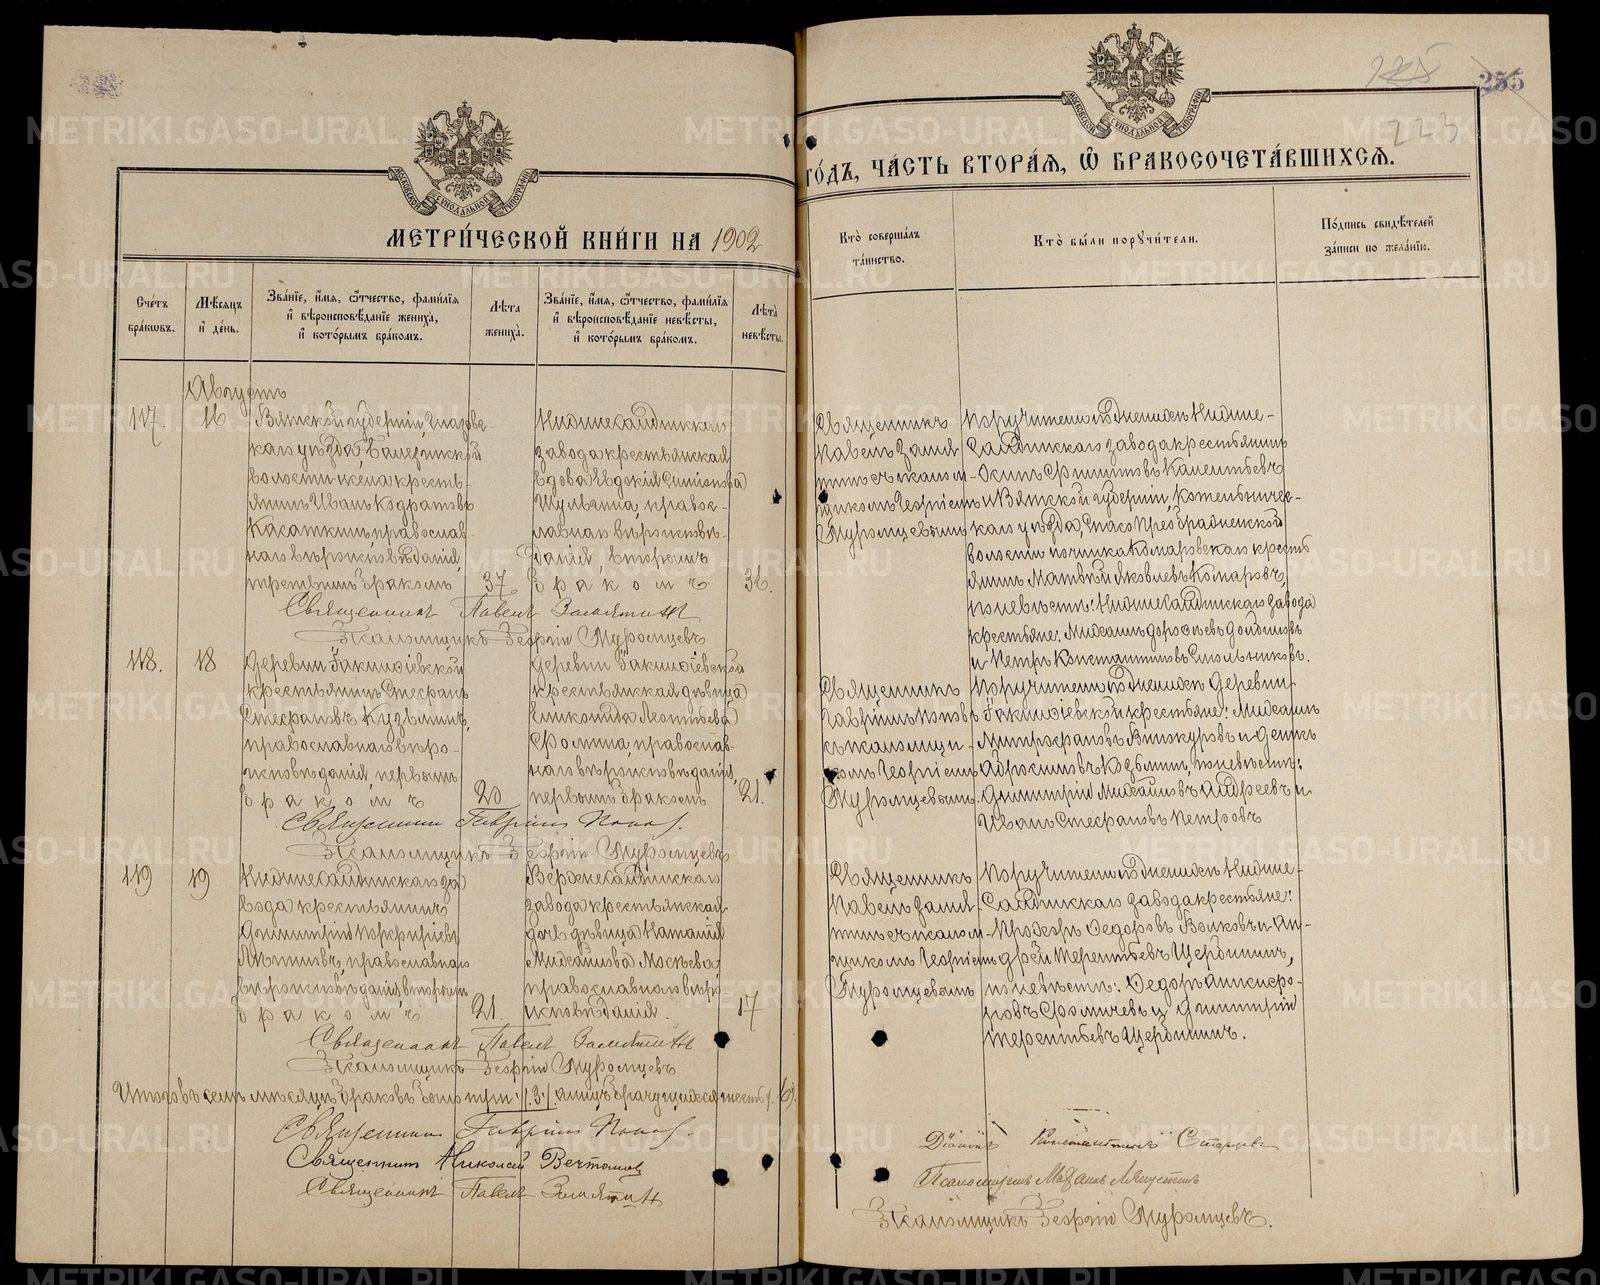 225
255
223
МЕТРИЧЕСКОЙ КНИГИ НА 1902
ГОДЪ, ЧАСТЬ ВТОРАЯ, Ѡ БРАКОСОЧЕТАВШИХСЯ.
Счетъ браковъ.
Мѣсяцъ и день.
Званіе, имя, отчество, фамилія и вѣроисповѣданіе жениха, и которымъ бракомъ.
Лѣта жениха.
Званіе, имя, отчество, фамилія и вѣроисповѣданіе невѣсты, и которымъ бракомъ.
Лѣта невѣсты.
Кто совершалъ таинство.
Кто были поручители.
Подпись свидѣтелей записи по желанію.
Августъ
117.
16
Вятской губерніи, Глазов-
скаго уѣзда,
волости
крестья-
нинъ Иванъ Кодратовъ
Касаткинъ, православ-
наго вѣроисповѣданія,
третьимъ бракомъ
37
Нижнесалдинскаго
завода крестьянская
вдова Евдокія Симіонова
Шульгина, правос-
лавнаго вѣроисповѣ-
данія, вторымъ
бракомъ
36.
Священникъ
Павелъ Замя-
тинъ съ псалом-
щикомъ Георгіемъ
Муромцевымъ
Поручители по женихѣ: Нижне-
Салдинскаго завода крестьянинъ
Осипъ Филипповъ
и Вятской губерніи, Котельниче-
скаго уѣзда, Спасо-Преображенской
волости починка Комаровскаго кресть-
янинъ Матвѣй Яковлевъ Комаровъ,
по невѣстѣ: Нижнесалдинскаго завода
крестьяне: Михаилъ Дороѳеевъ
и Петръ Константиновъ Смольниковъ.
Священникъ Павелъ Замятинъ
Псаломщикъ Георгій Муромцевъ
118.
18
Деревни
крестьянинъ Стефанъ
Стефановъ Кузьминъ,
православнаго вѣро-
исповѣданія, первымъ
бракомъ
20
Деревни
крестьянская дѣвица
Леонтьева
Фомина, православ-
наго вѣроисповѣданія,
первымъ бракомъ
21.
Священникъ
Гавріилъ Поповъ
съ псаломщи-
комъ Георгіемъ
Муромцевымъ
Поручители по женихѣ: Деревни
крестьяне: Михаилъ
Митрофановъ Винокуровъ и
по невѣстѣ:
Димитрій Михайловъ Андреевъ и
Иванъ Стефановъ Петровъ
Священникъ Гавріилъ Поповъ.
Псаломщикъ Георгій Муромцевъ
119
19
Нижнесалдинскаго за-
вода крестьянинъ
Димитрій Порфиріевъ
православнаго
вѣроисповѣданія, вторымъ
бракомъ
21.
Верхнесалдинскаго
завода крестьянская
дочь дѣвица Наталія
Михайлова Мосѣева,
православнаго вѣро-
исповѣданія.
17
Священникъ
Павелъ Замя-
тинъ съ псалом-
щикомъ Георгіемъ
Муромцевымъ
Поручители по женихѣ: Нижне-
Салдинскаго завода крестьяне:
Прохоръ Ѳедоровъ Волковъ и Ан-
дрей Терентьевъ Щербининъ,
по невѣстѣ: Ѳедоръ
и Димитрій
Терентьевъ Щербининъ.
Священникъ Павелъ Замятинъ
Псаломщикъ Георгій Муромцевъ
Итого въ семъ мѣсяцѣ браковъ было три /3/, лицъ брачущихся шесть /6/.
Священникъ Гавріилъ Поповъ.
Священникъ Николай
Священникъ Павелъ Замятинъ
Діаконъ Константинъ
Псаломщикъ
Псаломщикъ Георгій Муромцевъ.
METRIKI.GASO-URAL.RU